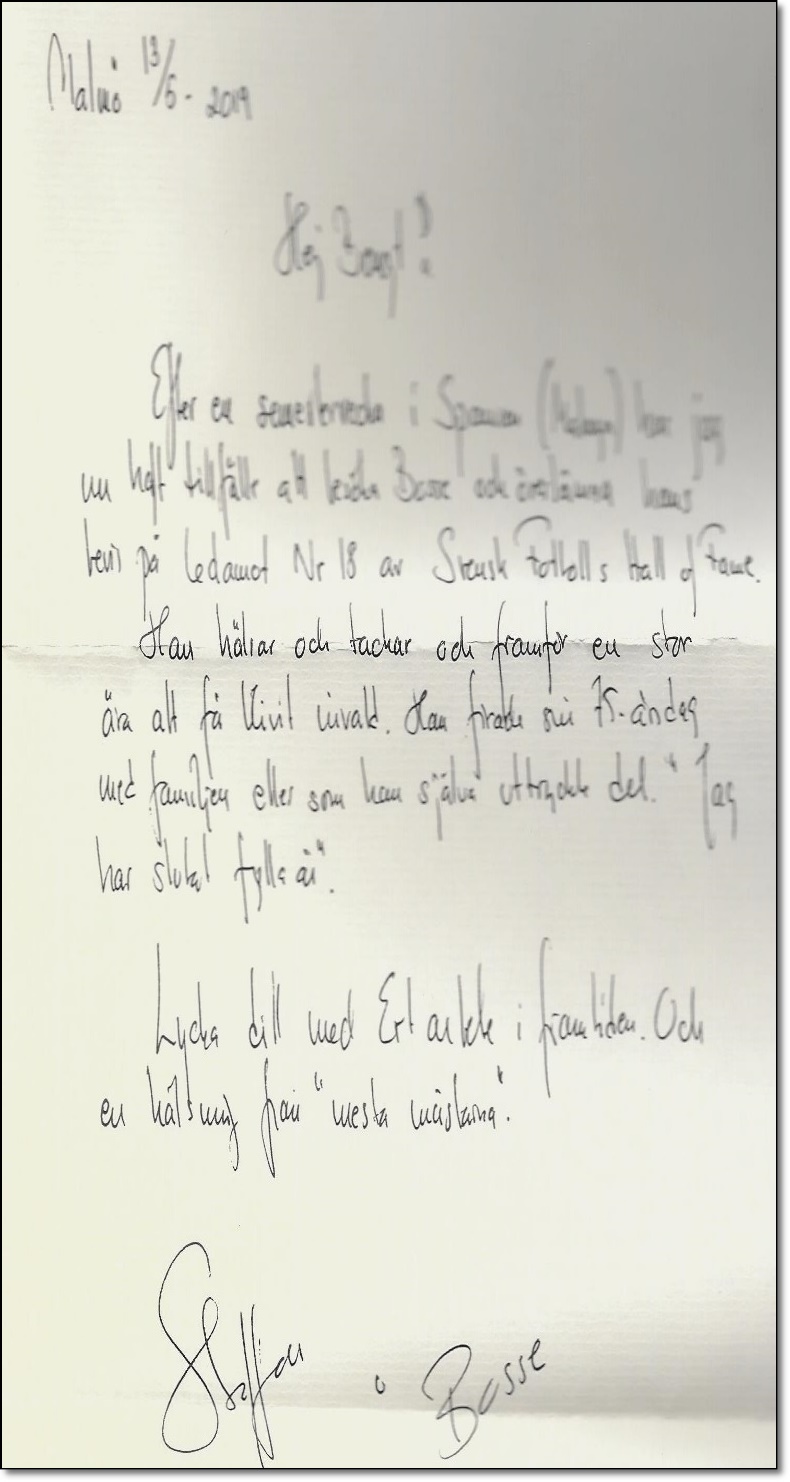 Malmö 13/6 - 2019
Hej Bengt!
Efter en semestervecka i Spanien (Malaga) har jag
nu haft tillfälle att besöka Bosse och överlämna hans
bevis på ledamot Nr 18 av Svensk Fotbolls Hall of Fame.
Han hälsar och tackar och framför en stor
ära att få blivit invald. Han firade sin 75-årsdag
med familjen eller som han själv uttryckte det. "Jag
har slutat fylla år".
Lycka till med Ert arbete i framtiden. Och
en hälsning från "mesta mästarna".
Staffan o Bosse